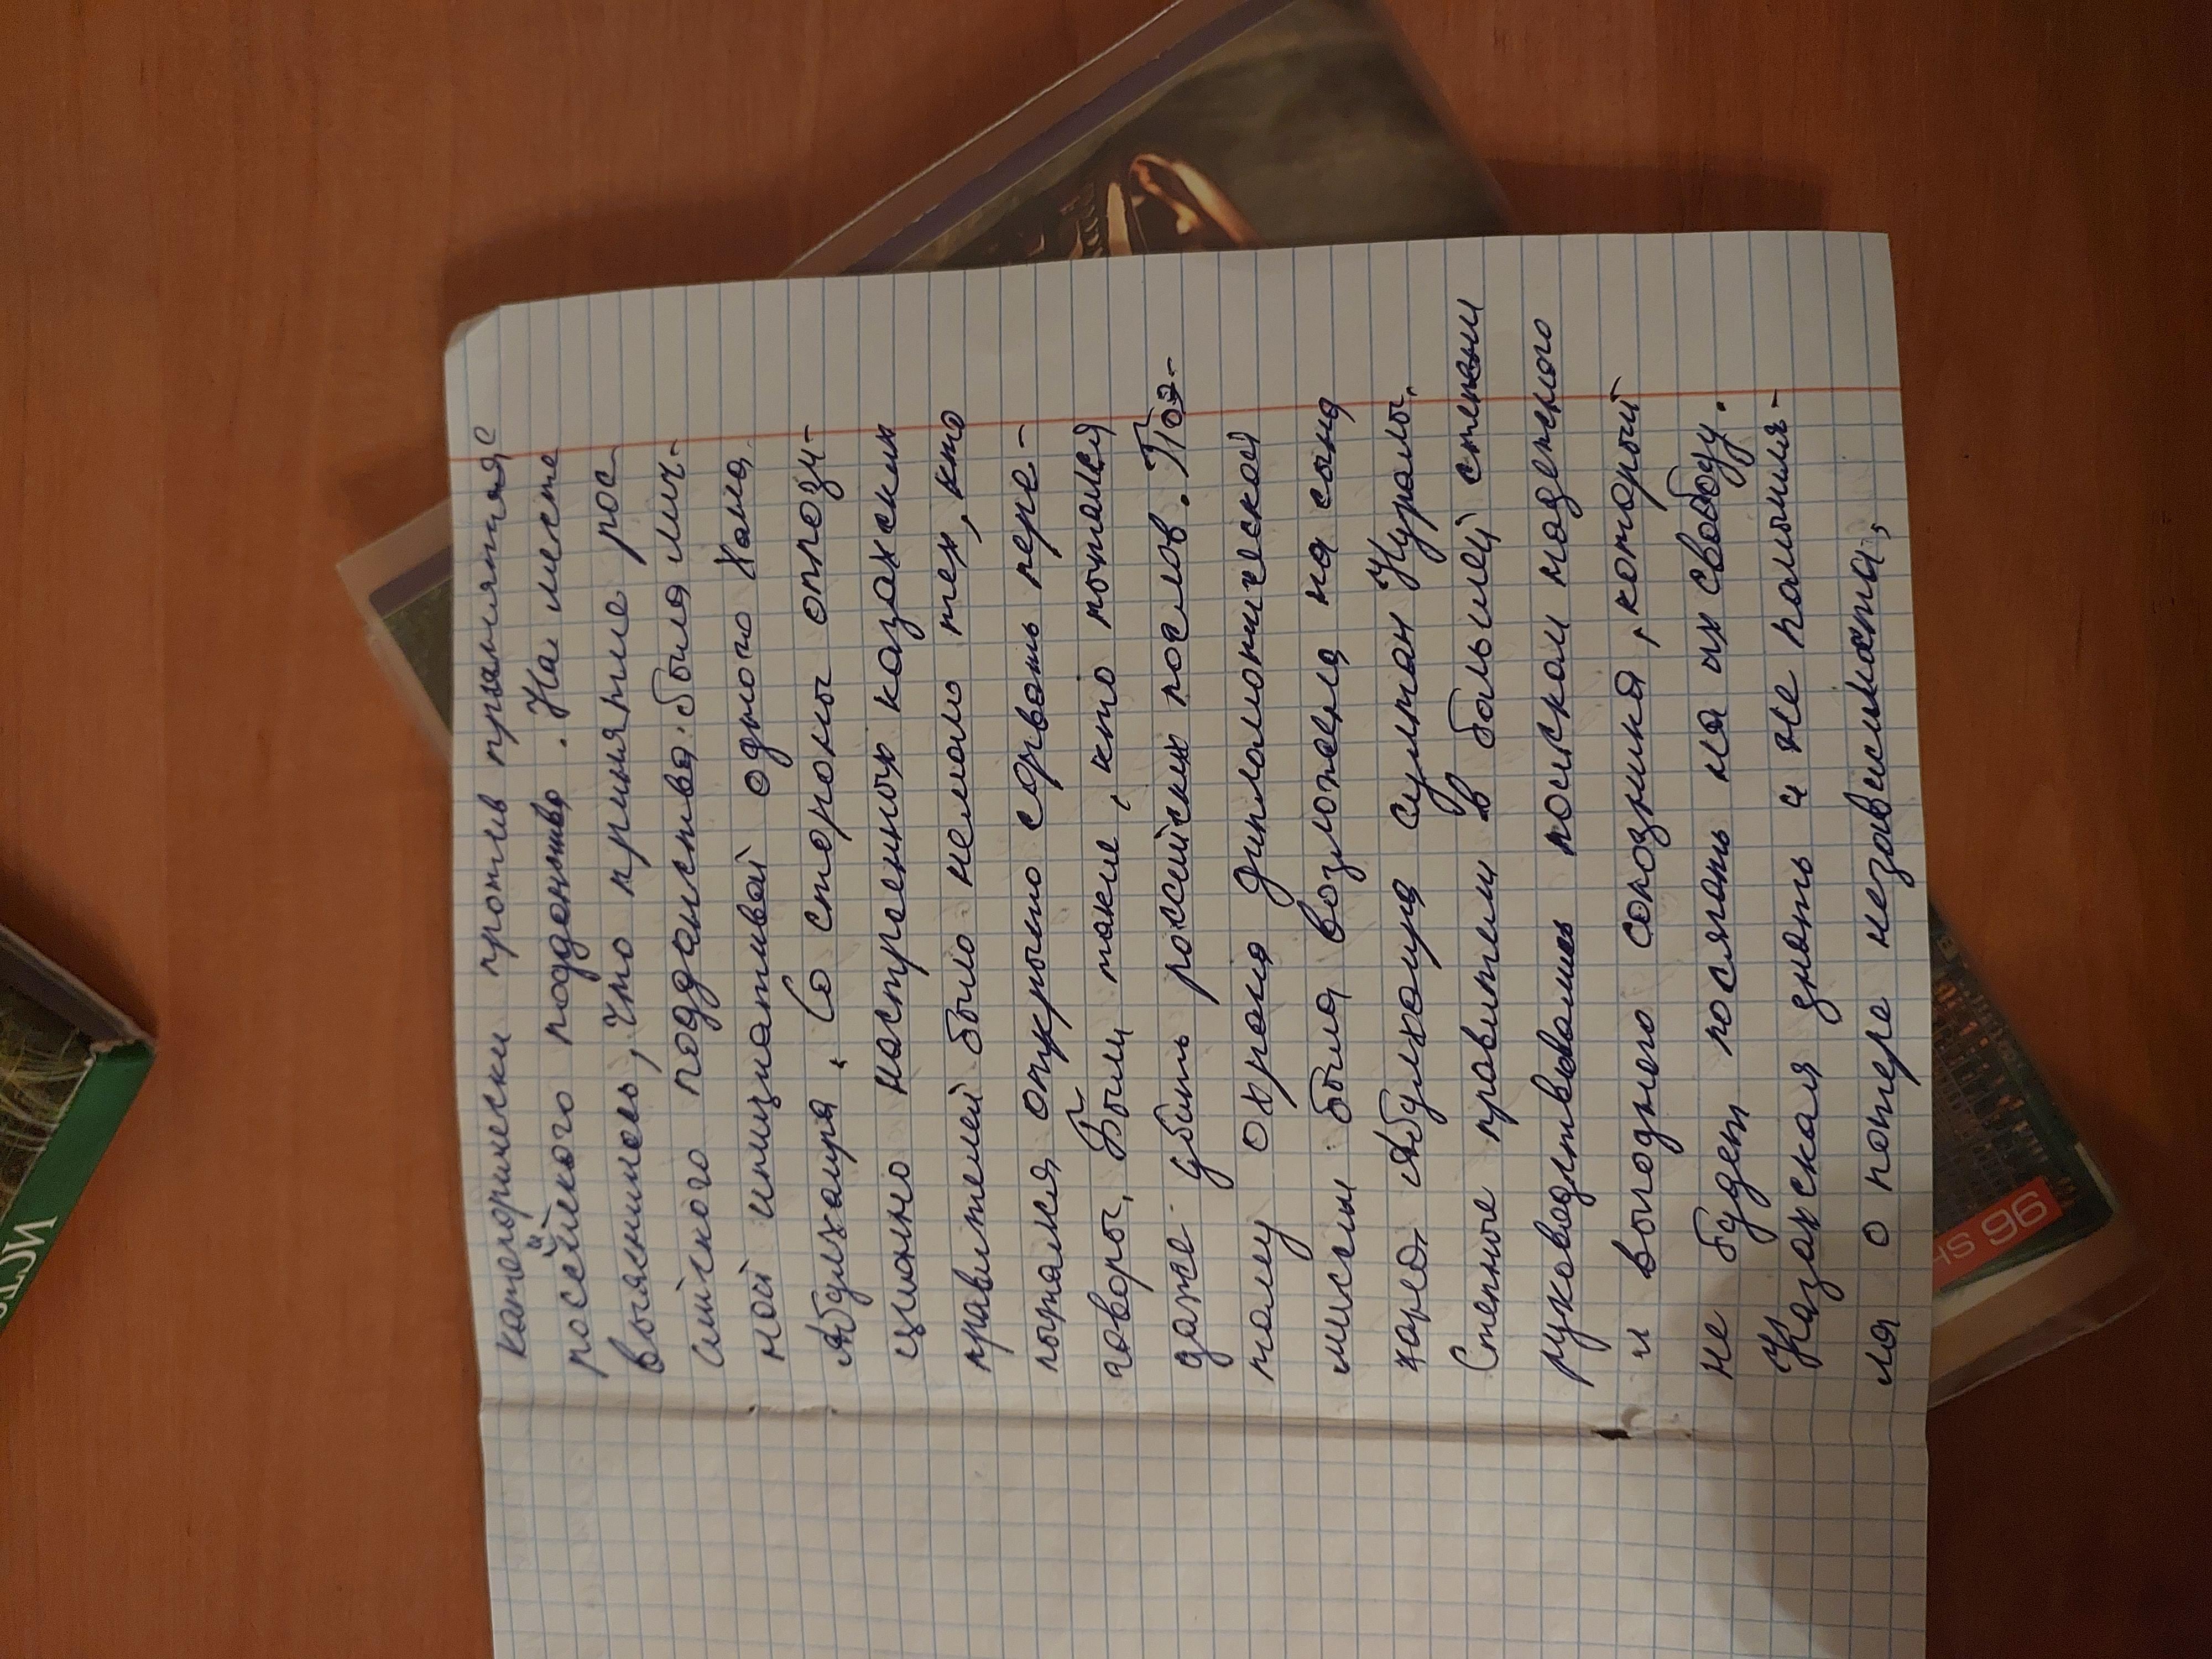 категорически против принятияя
российского подданства. На месте
выяснилось, что принятие рос
сийского подданства была лич-
ной инициативой одного хана
Абулхаира. Со стороны оппози-
ционно настроенных казахских
правителей было немало тех, кто
пытался открыто сорвать пере-
говоры. Были такие, кто пытался
даже убить российских послов. Поэ-
тому охрана дипломатической
миссии была возложена на сына
хана Абулхаира султан Нуралы.
Степные правители в большей степени
руководствовались поиском надежного
и выгодного союзника, который
не будет посягать на их свободу.
Казахская знать и не помышля-
ла о потере независимости,
ИСТО
96 SH